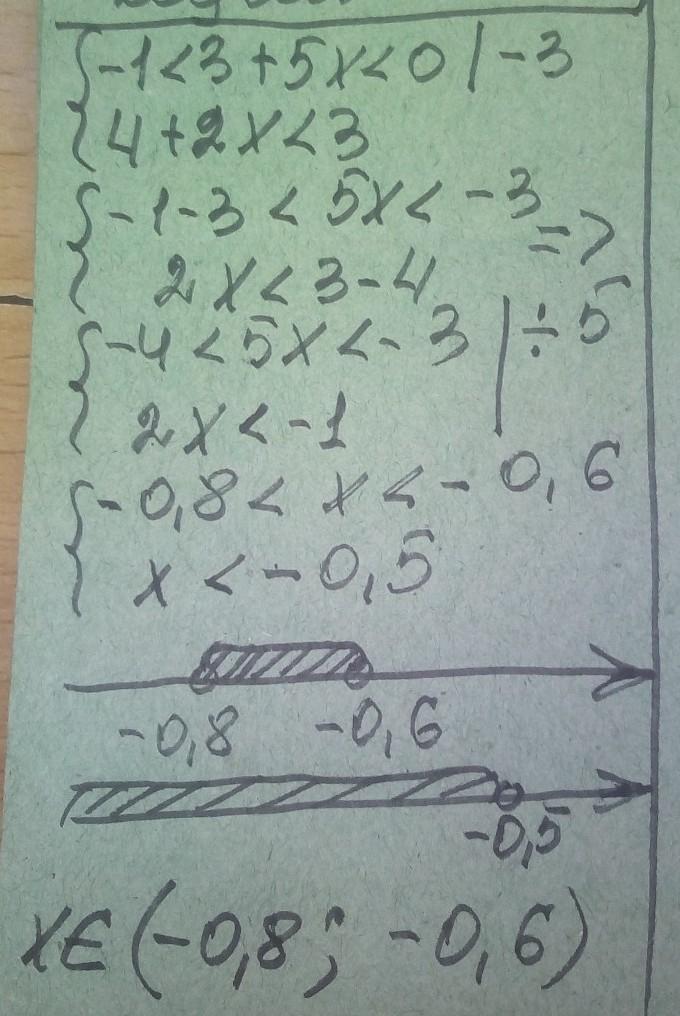 -1<3+5x<0 | -3
4+2x<3
-1-3 < 5x < -3
=>
2x<3-4
-4<5x<-3 | ÷5
2x<-1
-0,8< x <-0,6
x <-0,5
-0,8 -0,6
-0,5
x∈(-0,8; -0,6)